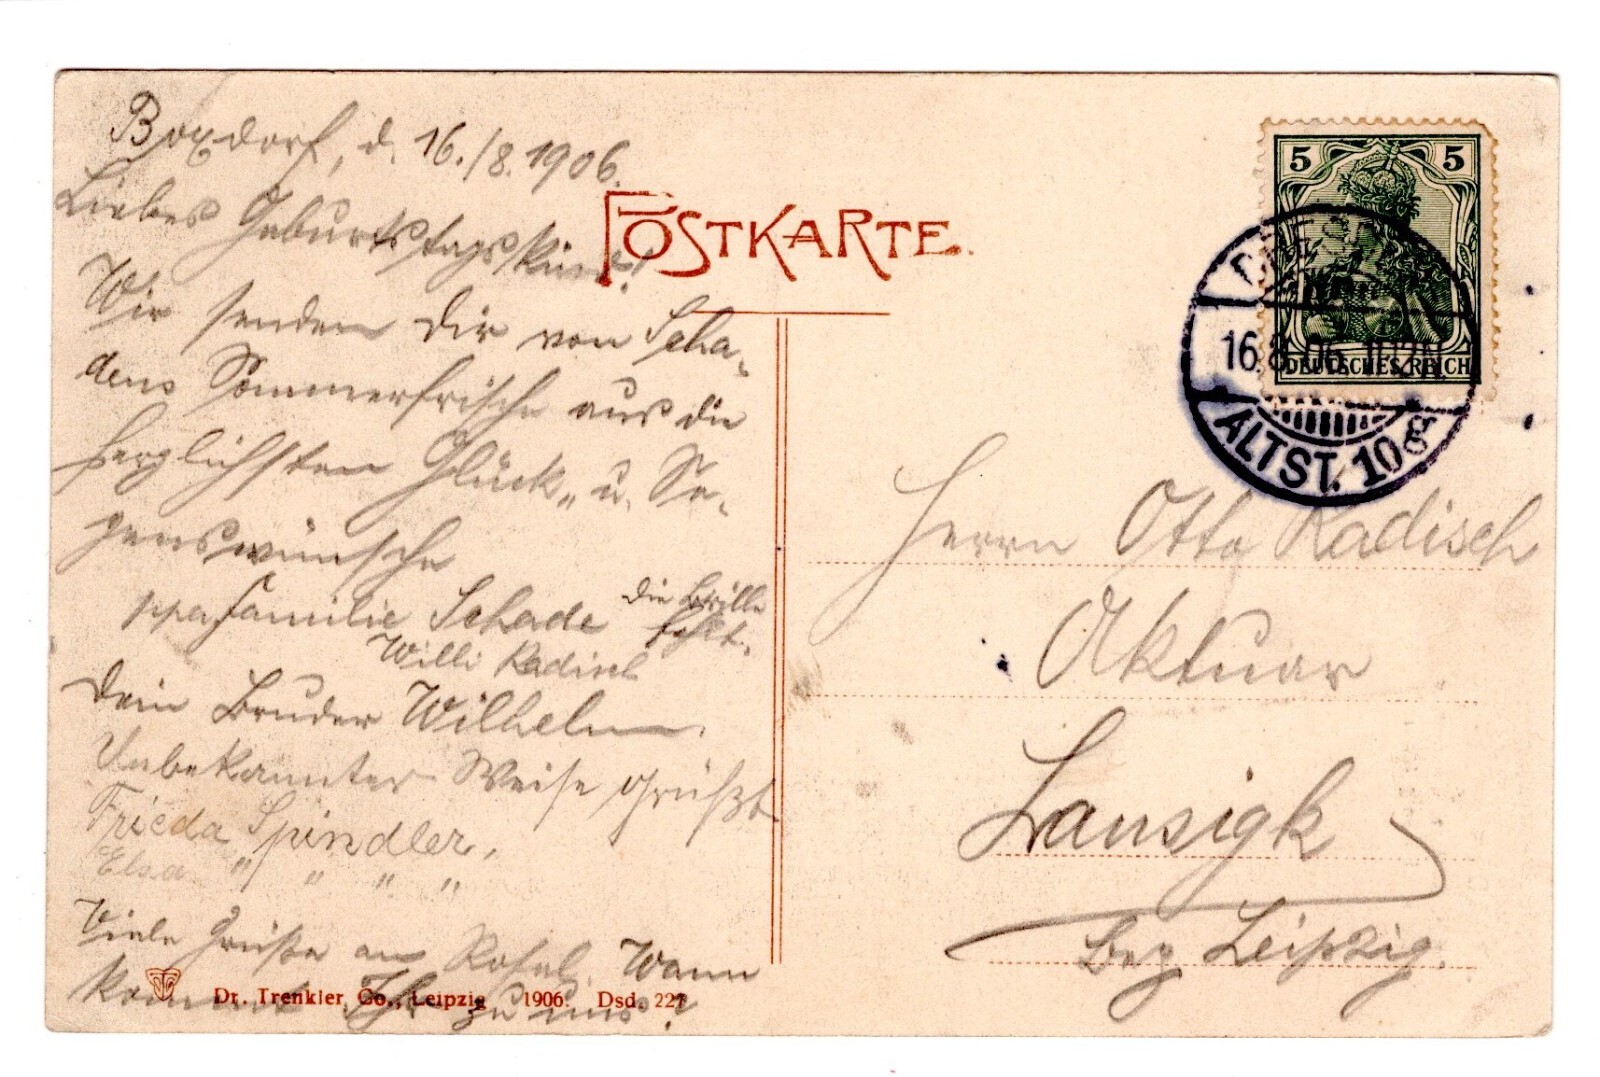 Boxdorf, d. 16./8. 1906.
Liebes Geburtstagskind!
Wir senden Dir von Scha-
dens Sommerfrische aus die
herzlichsten Glück- u. Se-
genswünsche
Familie Schade
die Brille
fehlt.
Willi Radisch
Dein Bruder Wilhelm.
Unbekannter Weise grüßt
Frieda Spindler.
Elsa " " " "
Viele Grüße an Rosel. Wann
kommt Ihr zu uns?
Dr. Trenkler Co., Leipzig 1906. Dsd. 227
POSTKARTE.
5 5
DEUTSCHES REICH
16.8.06.
ALTST. 10g
Herrn Otto Radisch
Aktuar
Lausigk
Bez Leipzig.